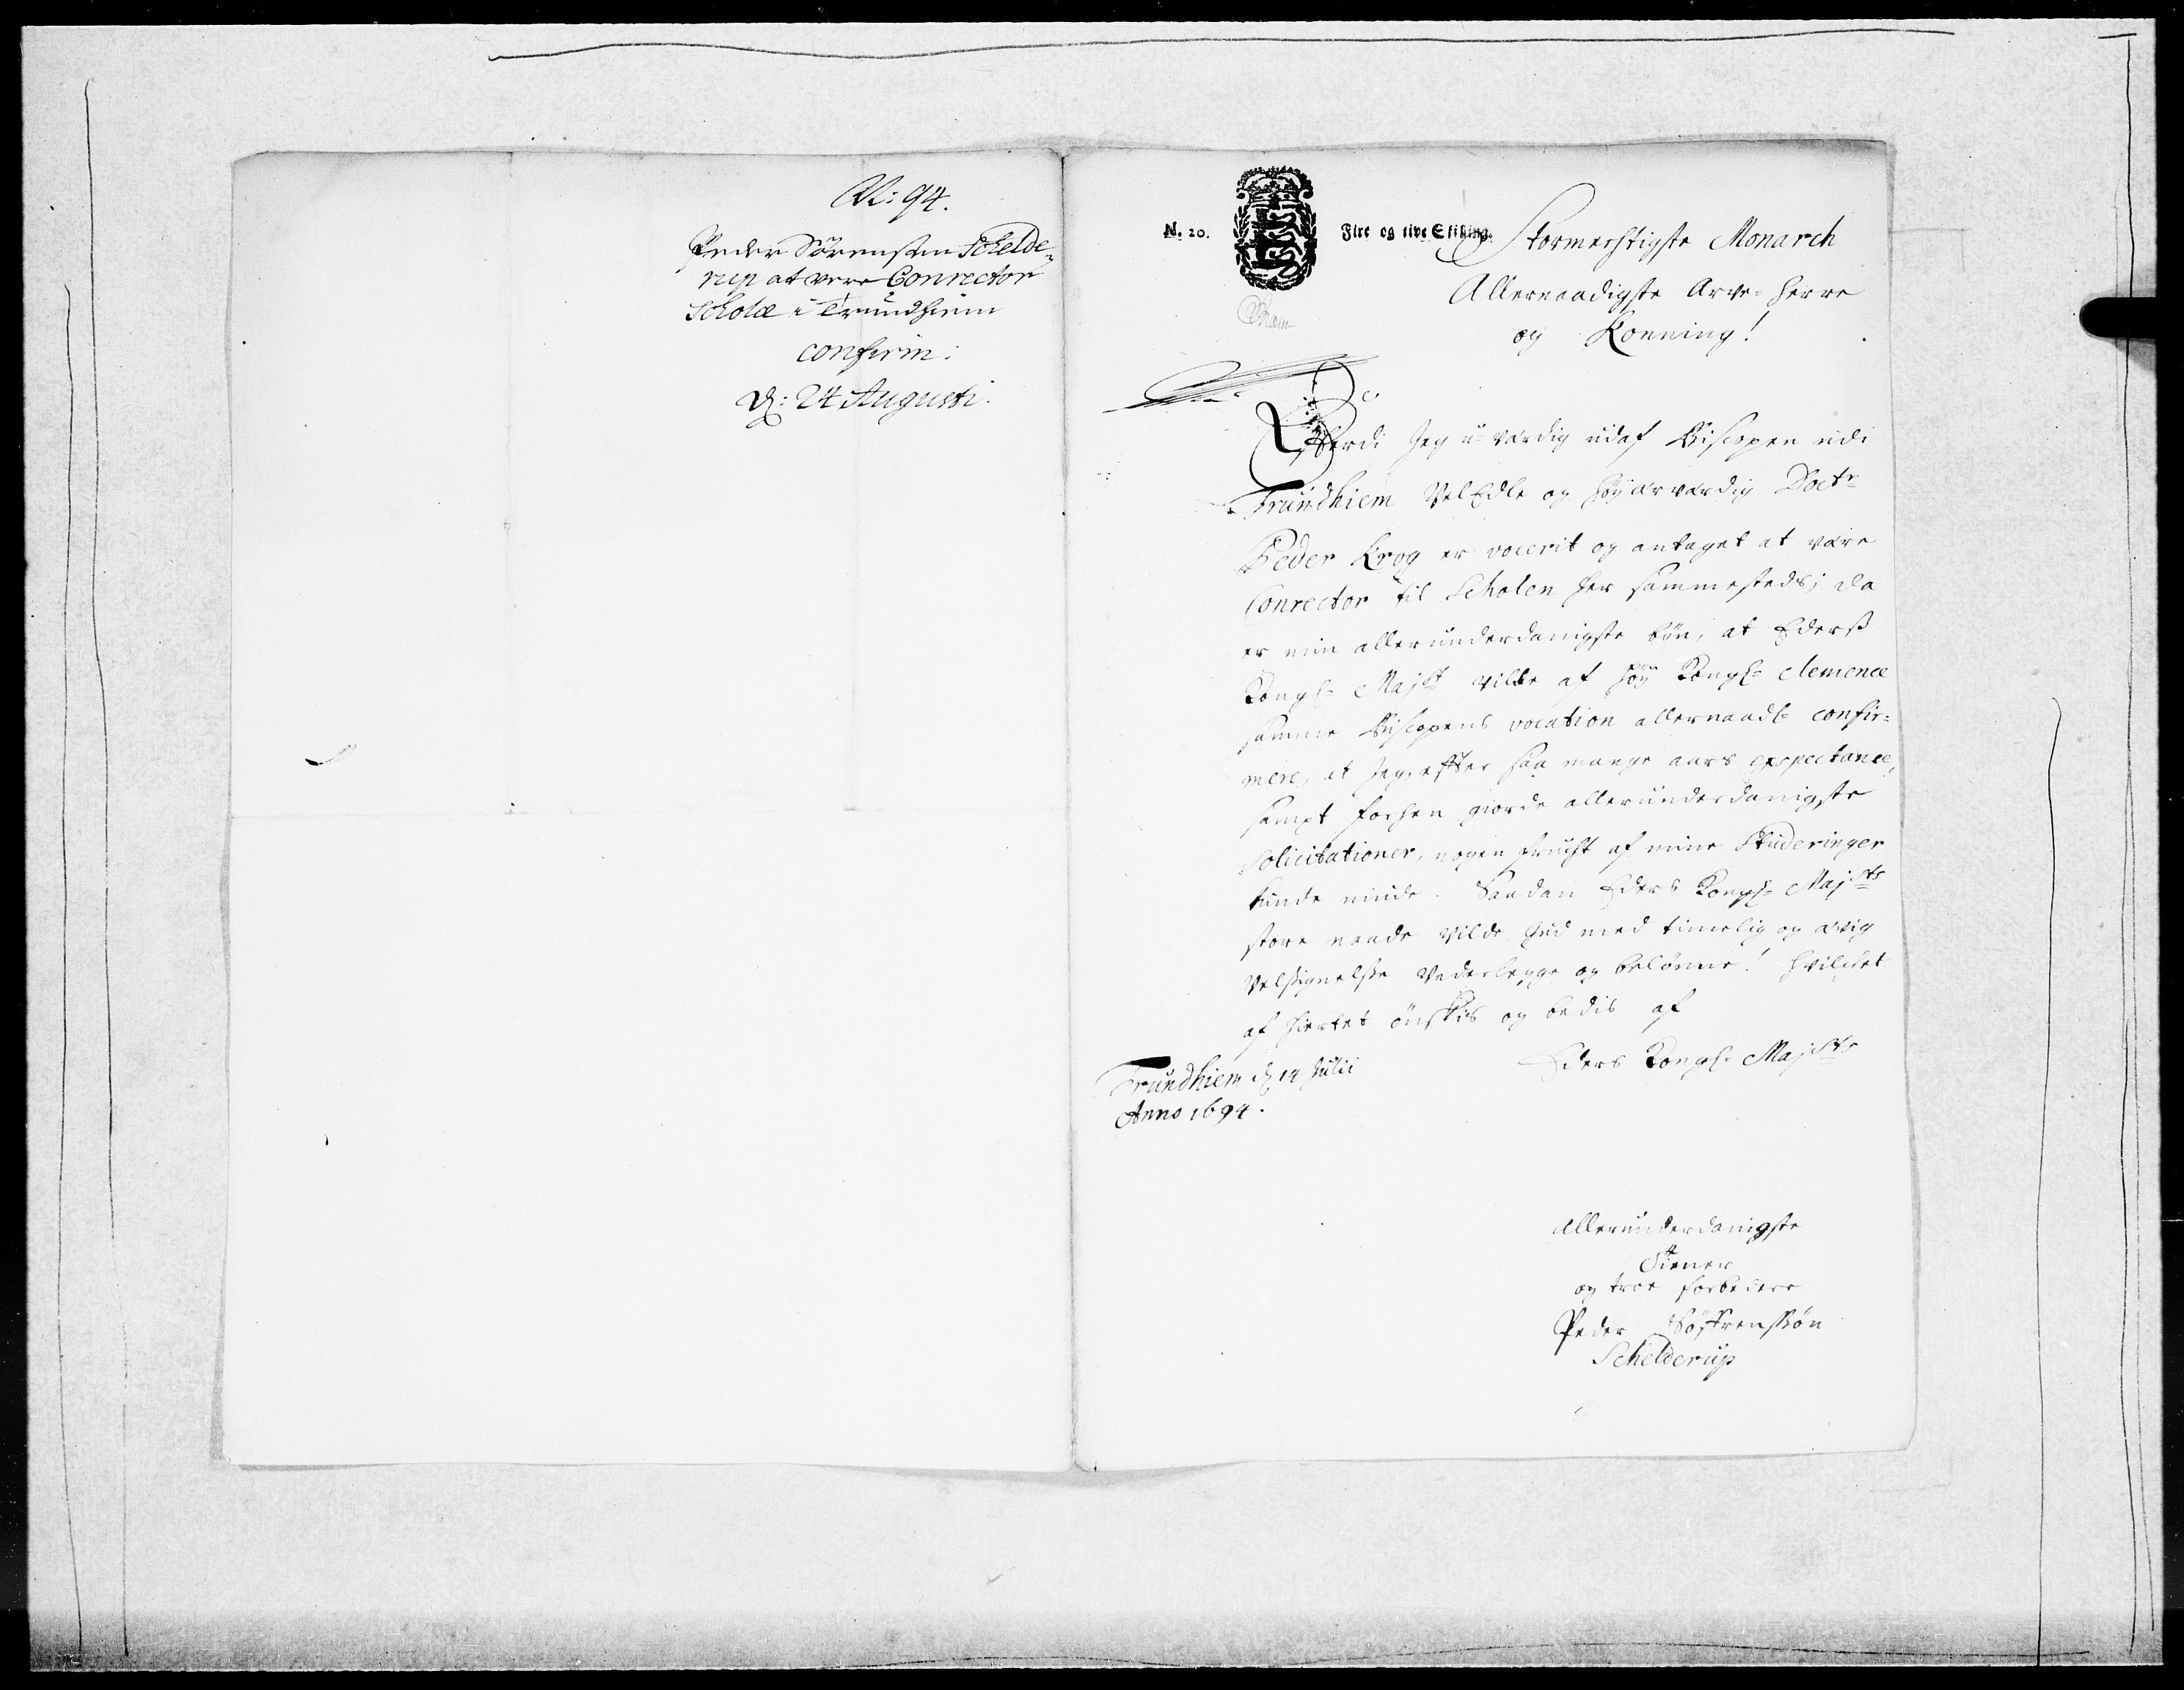 No: 94.
Peder Sörensen Schelde-
rup at være Conrector
Scholæ i Trundhiem
confirm:
D: 24 Augusti.
N. 20.
Fire og tive Skilling.
Stormechtigste Monarch
Allernaadigste Arve-Herre
og Konning!
Efterdi Jeg u-værdig udaf Biscopen udi
Trundhiem VelEdle og Høyærværdig Doctr
Peder Krog er vocerit og antaget at være
Conrector til Scholen her sammesteds; Da
er min allerunderdanigste bön, at Eders
Kongl: Majst vilde af høy Kongl: clemence
samme Biscopens vocation allernaadl: confir-
mere, at Jeg efter saa mange aars expectance,
sampt forhen giorde allerunderdanigste
Solicitationer, nogen frucht af mine Studeringer
kunde niude. Saadan Eders Kongl: Majsts
store naade vilde Gud med timelig og ævig
Velsignelse Vederlegge og belönne! hvilchet
af Hiertet önskis og bedis af
Eders Kongl: Majsts
Trundhiem d 14 Julii
Anno 1694.
Allerunderdanigste
Tiener
og troe forbedere
Peder Söffrensön
Schelderup